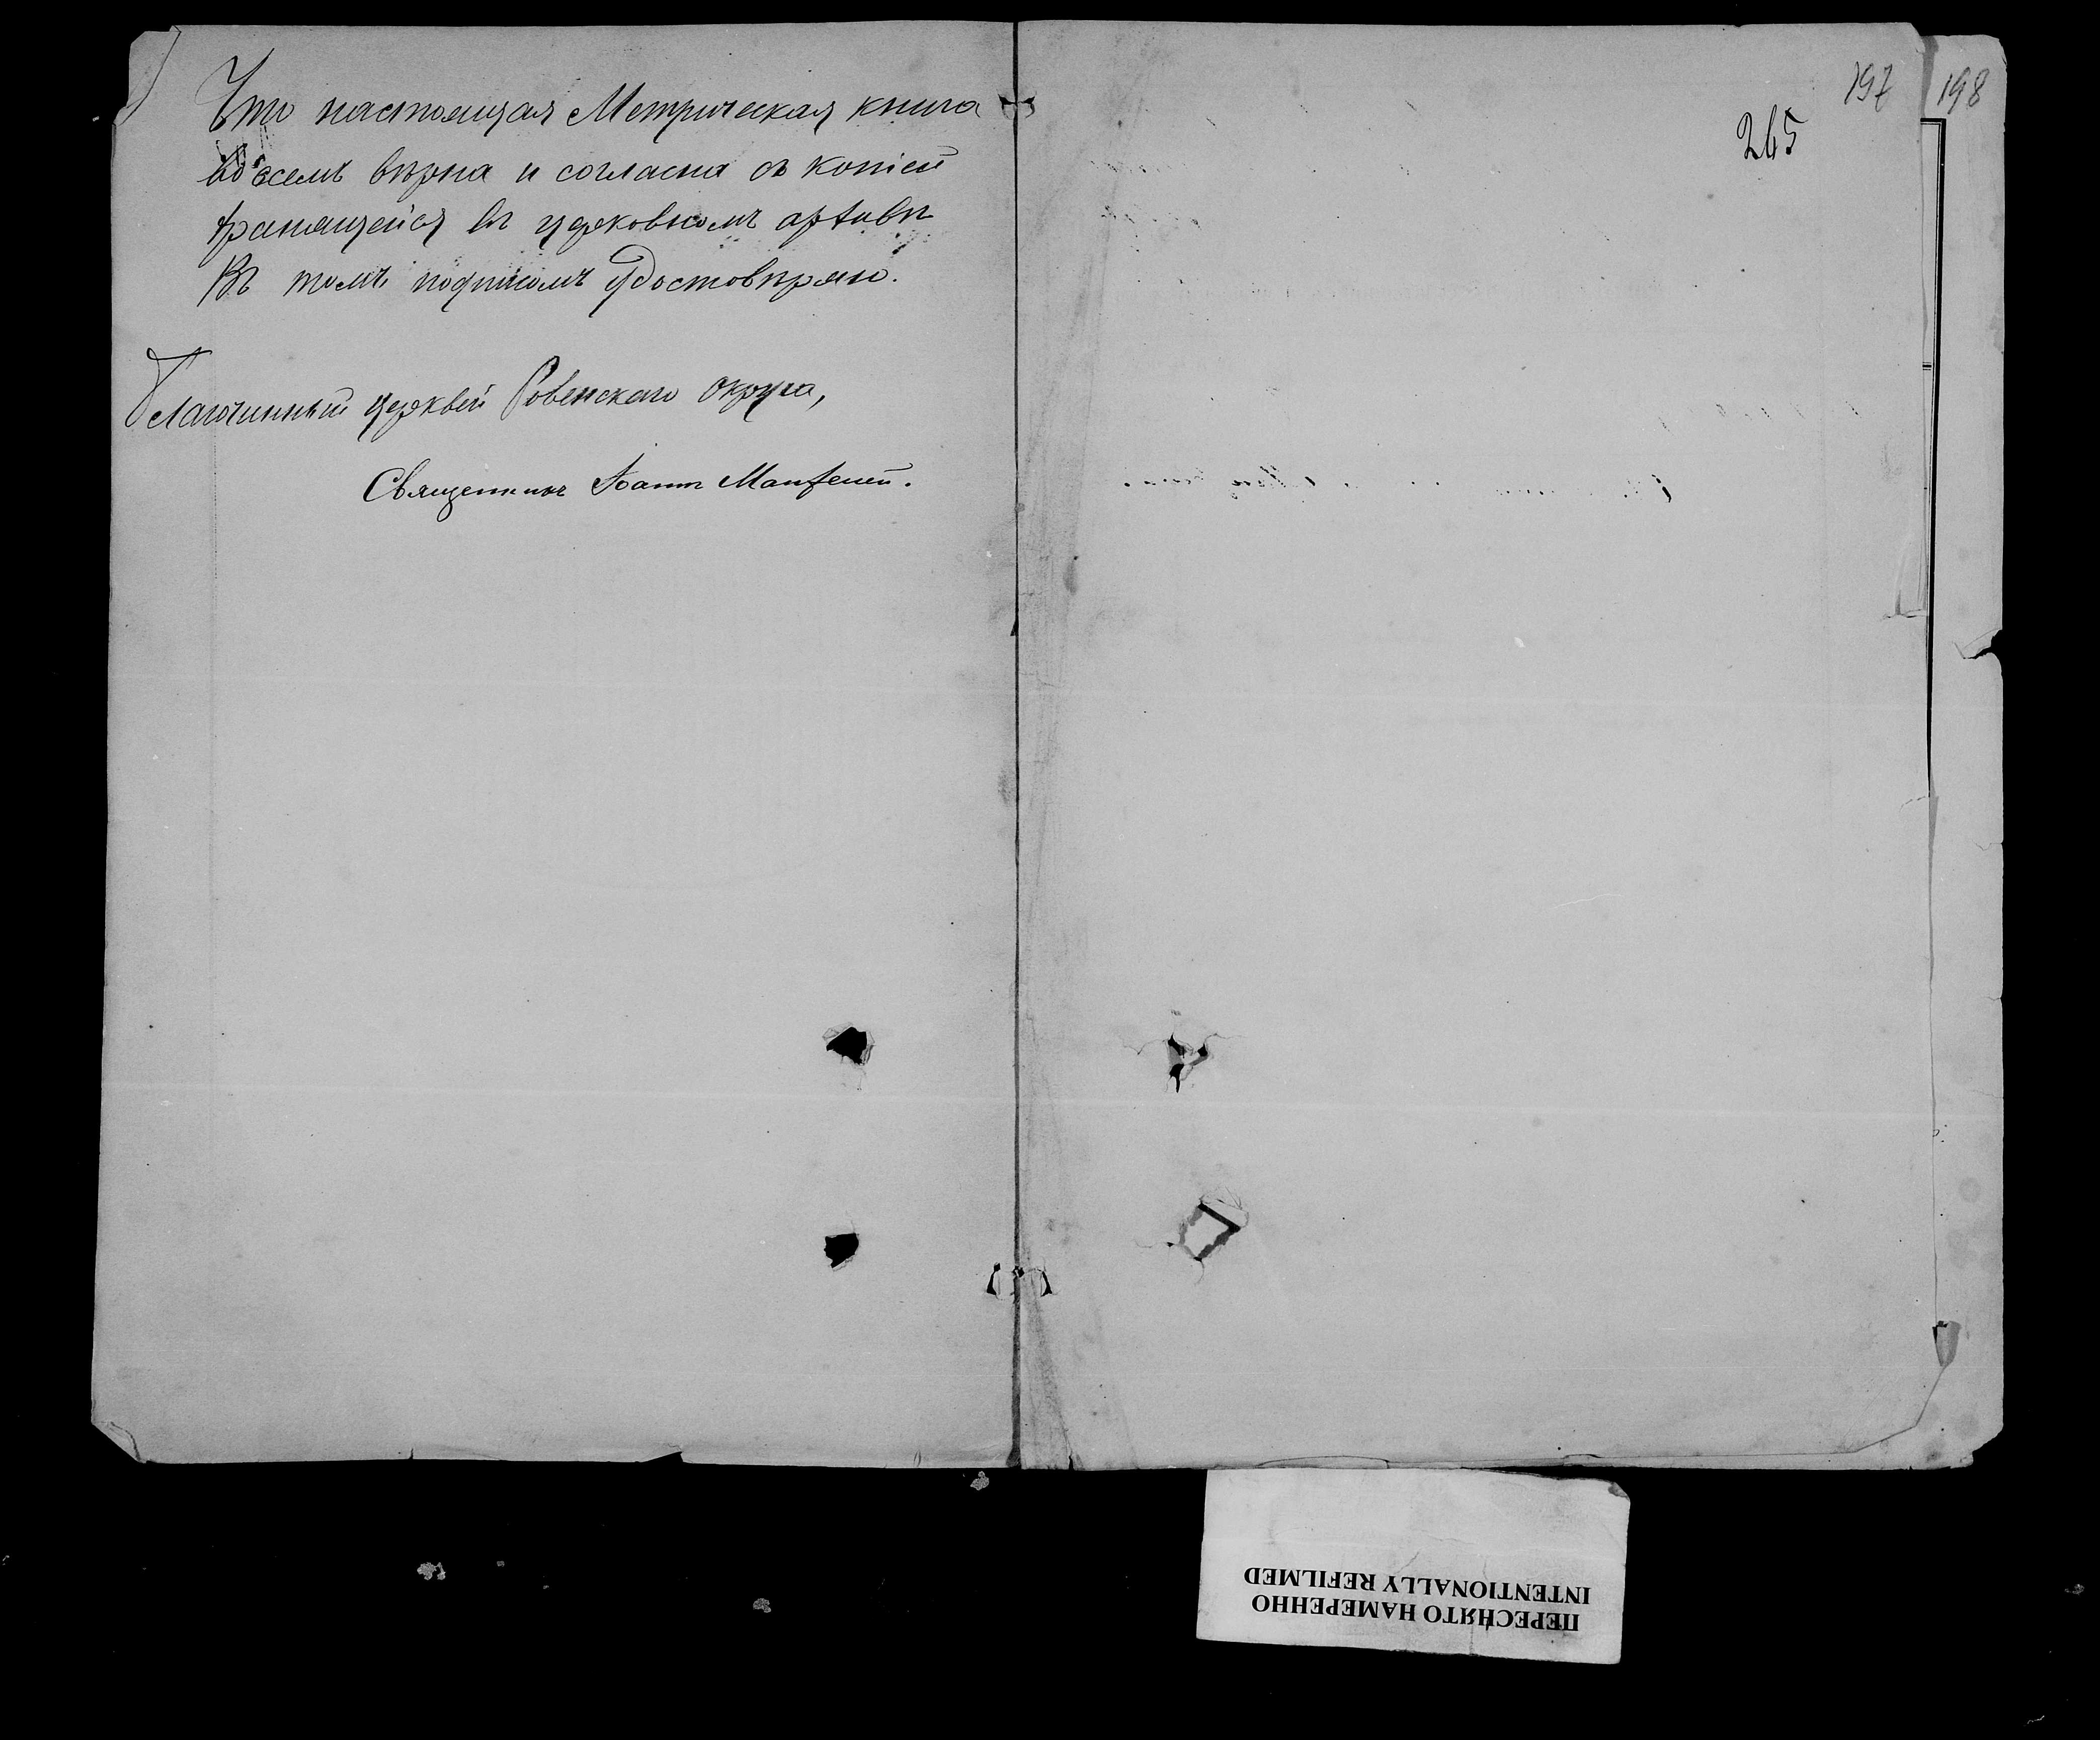 Что настоящая Метрическая книга
во всемъ вѣрна и согласна съ копіей
хранящейся въ церковномъ архивѣ
Въ томъ подписомъ удостовѣряю.
Благочинный церквей Ровенскаго округа,
Священникъ Іоаннъ
197
198
265
ПЕРЕСНЯТО НАМЕРЕННО
INTENTIONALLY REFILMED